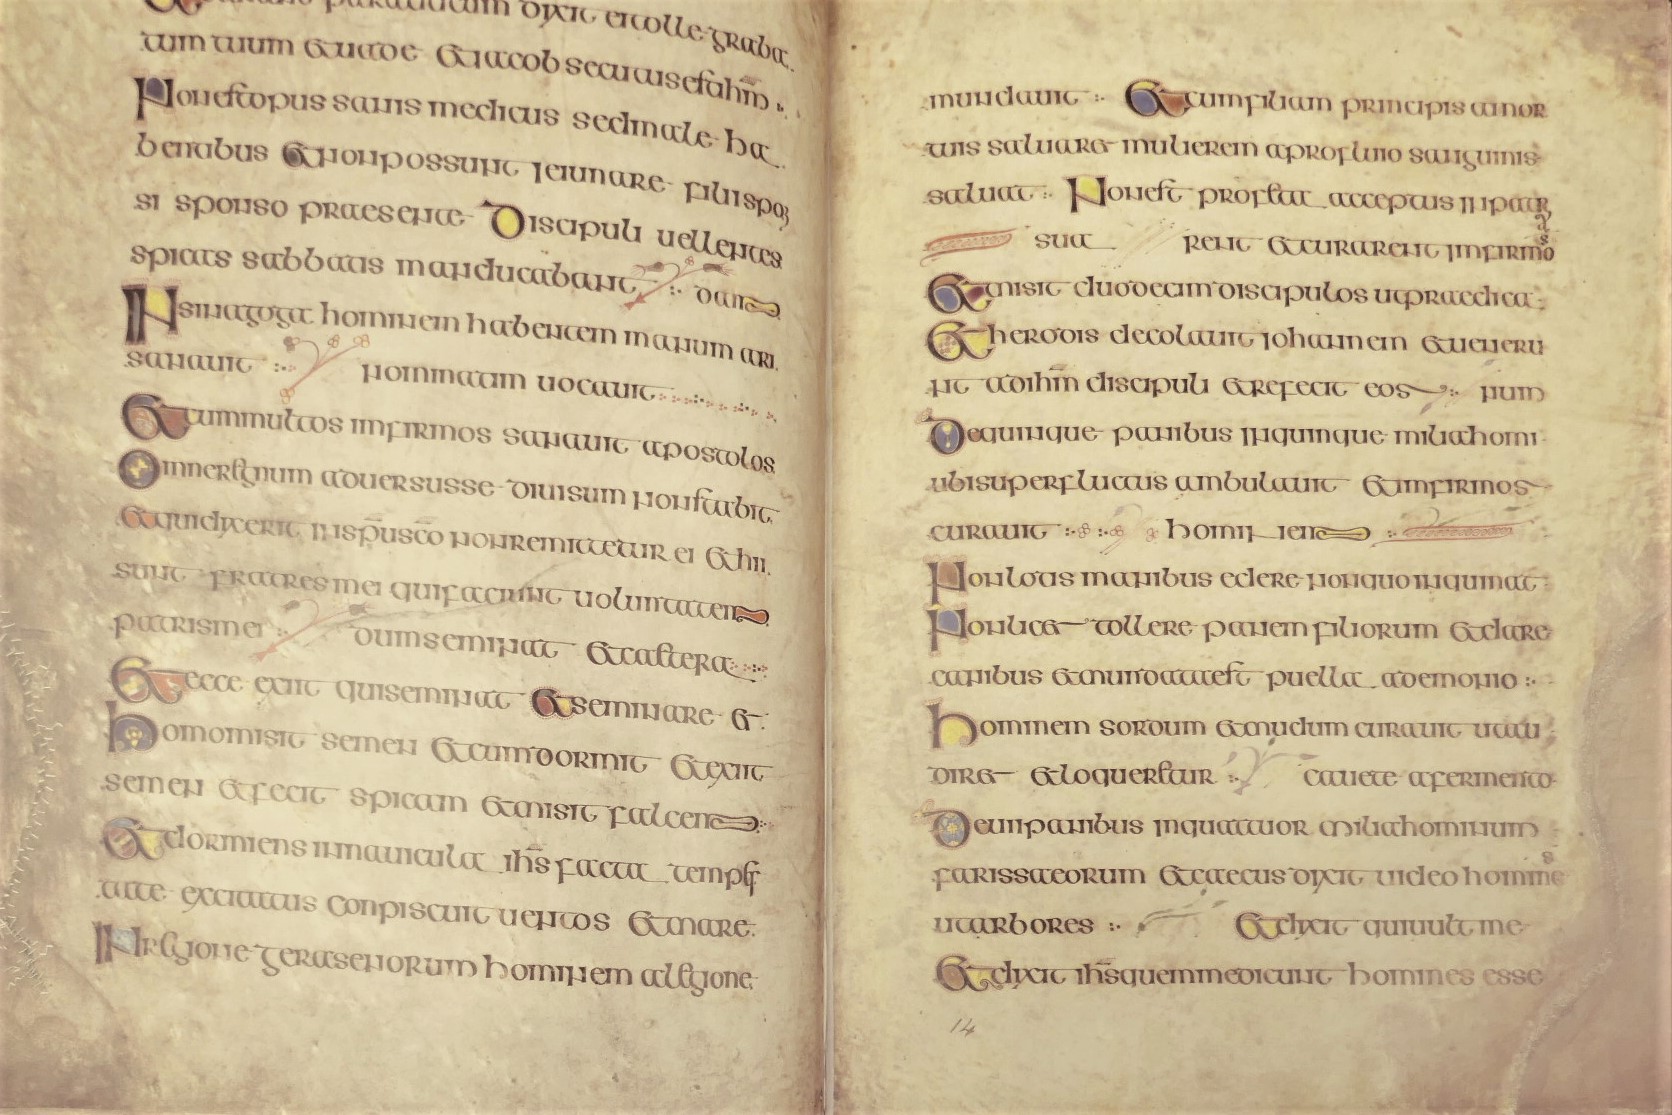 paraliticum dixit et tolle graba
tum tuum et uade et iacob secutus est ihm
Non est opus sanis medicus sed male ha
bentibus et non possunt ieiunare filii spon
si sponso praesente Discipuli uellentes
spicas sabbatis manducabant :· dam
In sinagoga hominem habentem manum ari
sanauit :· hominatim uocauit
Et cum multos infirmos sanauit apostolos
Omne regnum aduersus se diuisum non stabit
et qui dixerit in spu sco non remittetur ei et hii
sunt fratres mei qui faciunt uoluntatem
patris mei :· dum seminat et castera
Et ecce exiit qui seminat et seminare et
homo misit semen et cum dormit et exiit
semen et fecit spicam et misit falcem
Et dormiens in nauicula ihs facta tempes
tate excitatus conpiscuit uentos et mare
In regione gerasenorum hominem a legione
mundauit :· Et cum filiam principis a mor
tuis saluare mulierem a profluuio sanguinis
saluat :· Non est profeta acceptus in patria
sua rent et curarent infirmos
Et misit duodecim discipulos ut praedica
Et herodis decolauit iohannem et ueneru
nt ad ihm discipuli et refecit eos :· num
De quinque panibus in quinque milia homi
ubi super fluctus ambulauit et infirmos
curauit :· hominem
Non lotis manibus edere non quo inquinat
Non licet tollere panem filiorum et dare
canibus et mundata est puella a demonio :·
hominem sordum et mudum curauit ut au
diret et loqueretur :· cauete a fermento
De uii panibus in quattuor milia hominum
farissaeorum et caecus dixit uideo homines
ut arbores :· Et dixit qui uult me
Et dixit ihs quem me dicunt homines esse
14